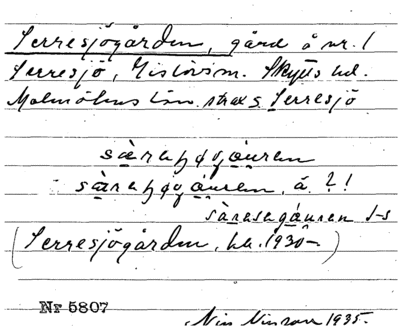 Serresjögården, gård å nr. 1
Serresjö, Gislövs sn. Skytts hd.
Malmöhus län. strax s Serresjö
sàraʃøgóuren
sàraʃøgóuren, å ? !
sàrasagáuren S-s
(Serresjögården, bl. 1930–)
Nr 5807
Nils Ninson 1935.